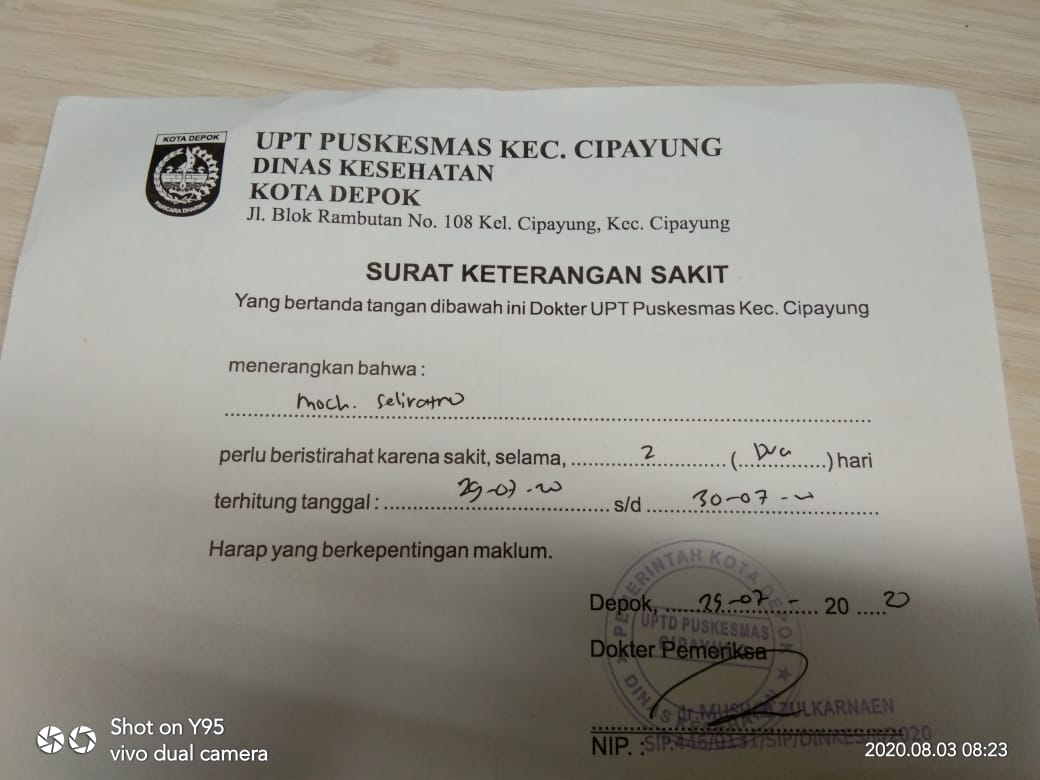 KOTA DEPOK
PARICARA DHARMA
UPT PUSKESMAS KEC. CIPAYUNG
DINAS KESEHATAN
KOTA DEPOK
Jl. Blok Rambutan No. 108 Kel. Cipayung, Kec. Cipayung
SURAT KETERANGAN SAKIT
Yang bertanda tangan dibawah ini Dokter UPT Puskesmas Kec. Cipayung
menerangkan bahwa :
Moch.
perlu beristirahat karena sakit, selama, 2 (Dua) hari
terhitung tanggal : 29-07-20 s/d 30-07-20
Harap yang berkepentingan maklum.
Depok, 29-07- 20 20
PEMERINTAH KOTA DEPOK
UPTD PUSKESMAS
CIPAYUNG
DINAS KESEHATAN
Dokter Pemeriksa
dr. ZULKARNAEN
NIP. :
Shot on Y95
vivo dual camera
2020.08.03 08:23